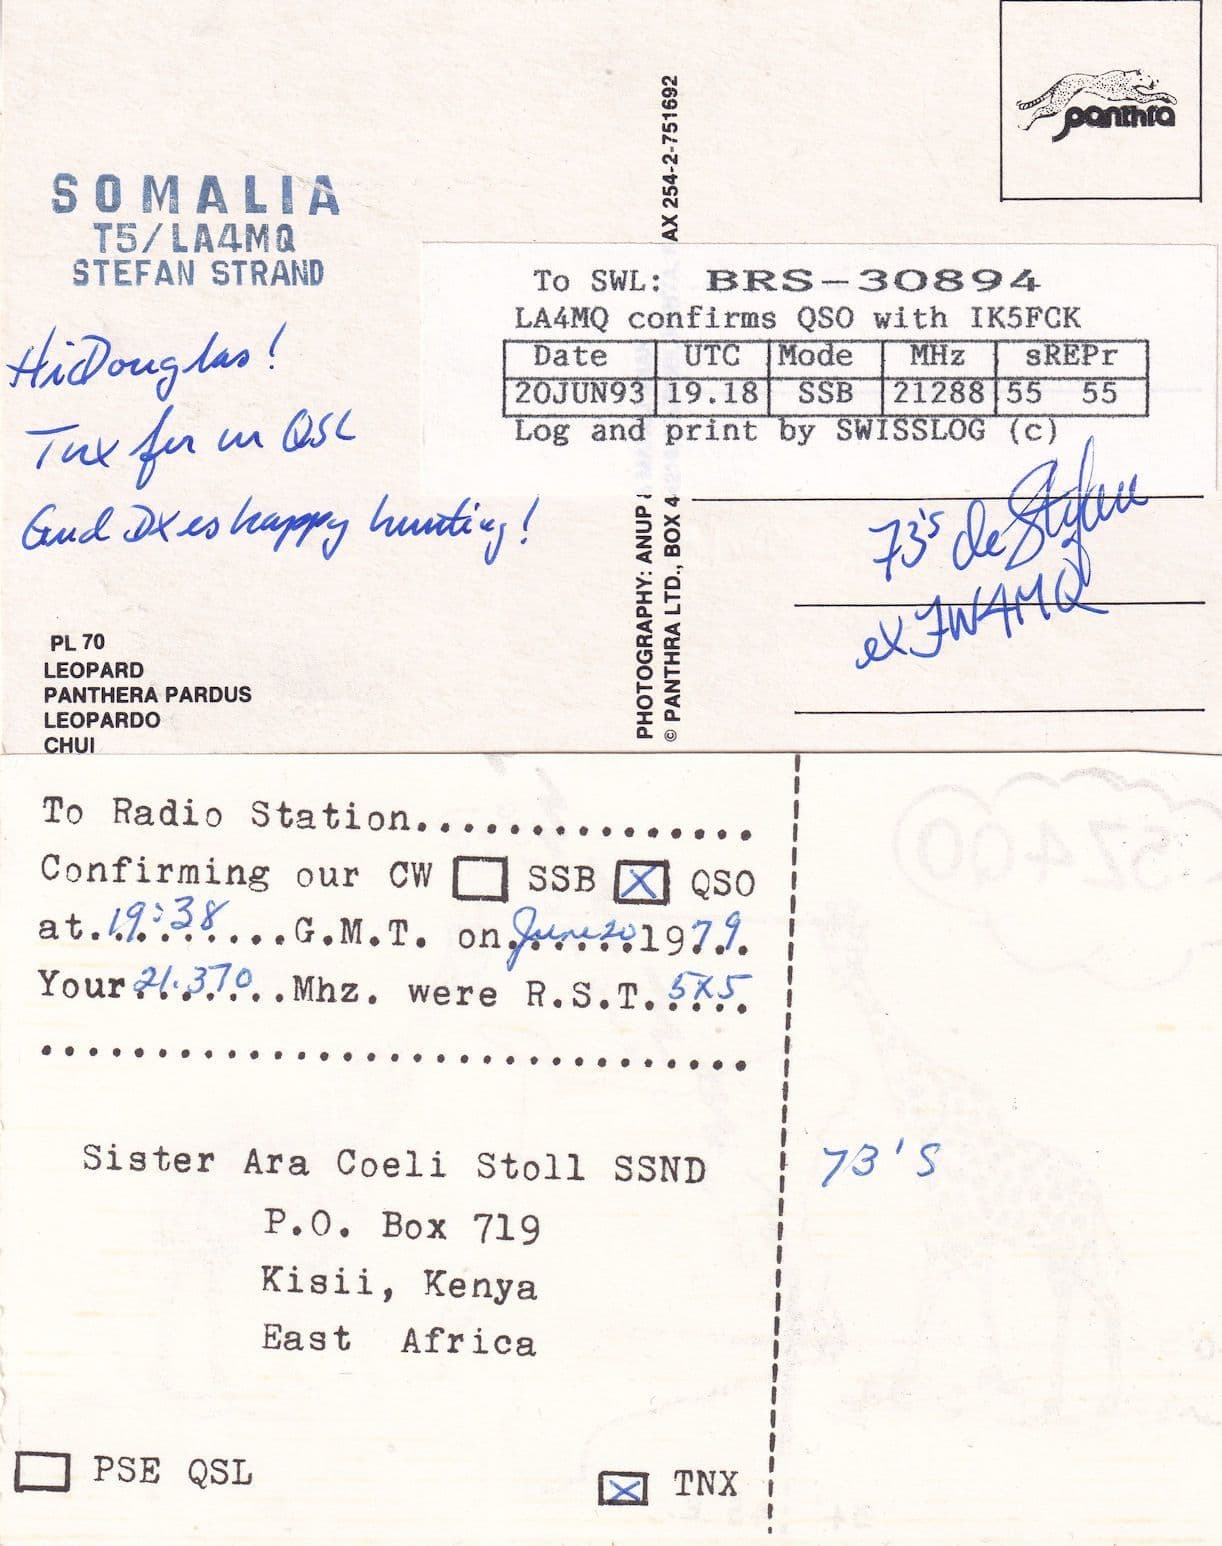 panthra
AX 254-2-751692
SOMALIA
T5/LA4MQ
STEFAN STRAND
To SWL: BRS-30894
LA4MQ confirms QSO with IK5FCK
Date UTC Mode MHz sREPr
20JUN93 19.18 SSB 21288 55 55
Log and print by SWISSLOG (c)
Hi Douglas!
Tnx fer ur QSL
Gud DX es happy hunting!
73's de Stefan
ex JW4MQ
PHOTOGRAPHY: ANUP
© PANTHRA LTD., BOX 4
PL 70
LEOPARD
PANTHERA PARDUS
LEOPARDO
CHUI
To Radio Station......................
Confirming our CW SSB X QSO
at.19:38......G.M.T. on.June 20..1979.
Your 21.370..Mhz. were R.S.T. 5X5
................................
Sister Ara Coeli Stoll SSND
P.O. Box 719
Kisii, Kenya
East Africa
73's
PSE QSL
X TNX
5Z4QO